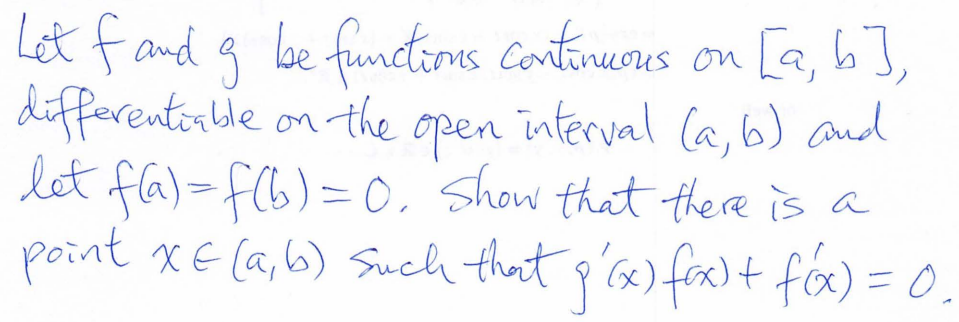 Let f and g be functions continuous on [a, b],
differentiable on the open interval (a, b) and
let f(a) = f(b) = 0. Show that there is a
point x ∈ (a, b) such that g'(x) f(x) + f'(x) = 0.